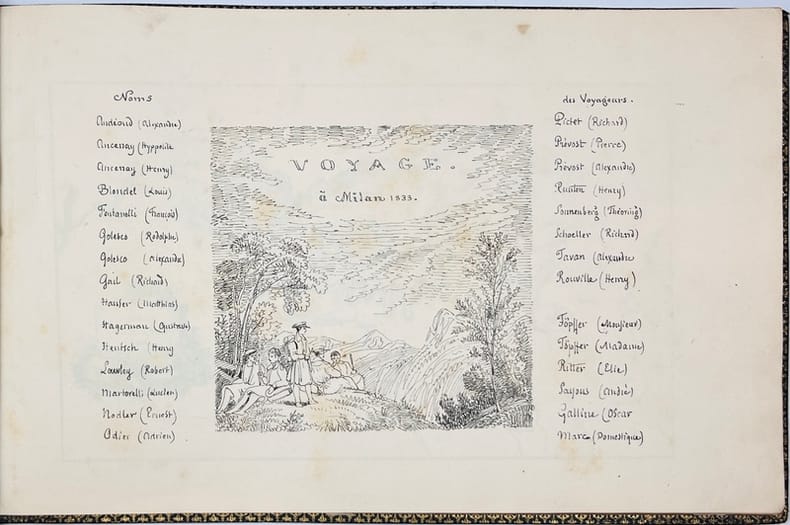 Noms
Audéoud (Alexandre)
Ancenay (Hyppolite
Ancenay (Henry)
Blondel (Louis)
Fontanelli (François)
Golesco (Rodolphe)
Golesco (Alexandre)
Gail (Richard)
Hauser (Matthias)
Hagerman (Gustave)
Hentsch (Henry
Lawley (Robert)
Martorelli (Lucien)
Nodler (Ernest)
Odier (Adrien)
VOYAGE.
à Milan 1833.
des Voyageurs.
Pictet (Richard)
Prévost (Pierre)
Prévost (Alexandre)
(Henry)
Sonnenberg (Théoring)
Schoeller (Richard)
Tavan (Alexandre
Rouville (Henry)
Töpffer (Monsieur)
Töpffer (Madame)
Ritter (Elie)
Sayous (André)
Galline (Oscar
Marc (Domestique)